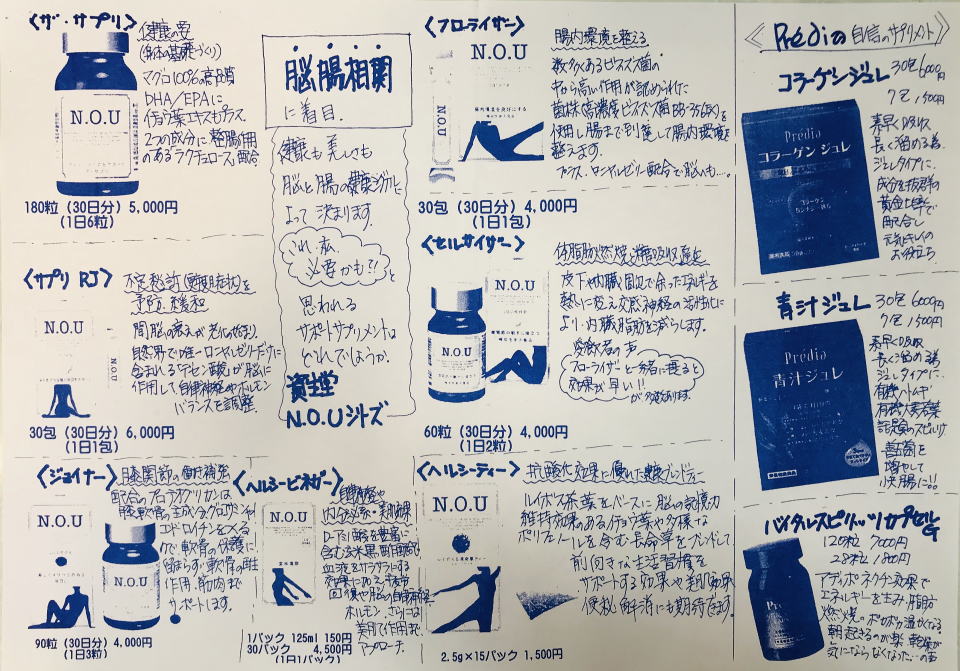 〈ザ・サプリ〉
健康の要
(身体の基礎づくり)
マグロ100%の高品質
DHA/EPAに
イチョウ葉エキスもプラス
2つの成分に整腸作用
のあるラクチュロースも配合
N.O.U
180粒(30日分)5,000円
(1日6粒)
脳腸相関
に着目.
健康も美しさも
脳と腸の健康シグナルに
よって決まります.
これ、私、
必要かも?!と
思われる
サポートサプリメントは
どれでしょうか.
資生堂
N.O.Uシリーズ
〈フローライザー〉
N.O.U
腸内環境を整える
数多くあるビフィズス菌の
中から高い作用が認められた
菌株高濃度ビフィズス菌BB-356(株)を
使用し腸まで到達して腸内環境を
整えます.
プラス、ロイヤルゼリー配合で脳へも….
30包(30日分)4,000円
(1日1包)
〈サプリ RJ〉
不定愁訴(更年期症状)を
予防、緩和
N.O.U
間脳の衰えが老化の始まり
自然界で唯一ローヤルゼリーだけに
含まれるデセン酸が脳に
作用して自律神経やホルモン
バランスを調整.
30包(30日分)6,000円
(1日1包)
〈セルサイザー〉
体脂肪燃焼と糖吸収遅延
N.O.U
N.O.U
皮下や内臓周辺で余ったエネルギーを
熱に変え交感神経の活性化に
より、内臓脂肪を減らします.
愛飲者の声
フローライザーと一緒に摂ると
効果が早い!!
が多数あります.
60粒(30日分)4,000円
(1日2粒)
〈ジョイナー〉
膝関節の働き補強
配合のプロテオグリカンは
膝軟骨の主成分、グルコサミンや
コンドロイチンを入れる
ことで軟骨の保護に
留まらず軟骨の再生
作用、筋肉まで
サポートします.
N.O.U
N.O.U
90粒(30日分)4,000円
(1日3粒)
〈ヘルシービネガー〉
自律神経や
内分泌系・美肌効果
N.O.U
玄米黒酢
D-アミノ酸を豊富に
含む玄米黒酢. 酢酸で
血液をサラサラにする
効果に加え、疲労
回復や脳の自律神経
ホルモン、さらには
美肌作用まで
アプローチ.
1パック 125ml 150円
30パック 4,500円
(1日1パック)
〈ヘルシーティー〉
抗酸化効果に優れた健康ブレンドティー
N.O.U
ルイボス茶葉をベースに脳の記憶力
維持効果のあるイチョウ葉や多様な
ポリフェノールを含む長命草をブレンドして
前向きな生活習慣を
サポートする効果や美肌効果
便秘解消にも期待できます.
2.5g×15パック 1,500円
《Prédiaの自信のサプリメント》
コラーゲンジュレ
30包 6000円
7包 1,500円
Prédia
コラーゲン ジュレ
素早く吸収
長く留める為、
ジュレタイプに.
成分を抜群の
黄金比率で
配合し
元気とキレイの
お役立ち.
青汁ジュレ
30包 6000円
7包 1,500円
Prédia
青汁ジュレ
素早く吸収
長く留める為
ジュレタイプに.
有機ハトムギ
有機大麦若葉
話題のスピルリナ
善菌を
増やして
快腸に!!
バイタルスピリッツカプセルG
120粒 7000円
28粒 1,800円
Prédia
アディポネクチン効果で
エネルギーを生み、脂肪
燃焼.ポカポカ温かくなる.
朝起きるのが楽、乾燥が
気にならなくなった…の声